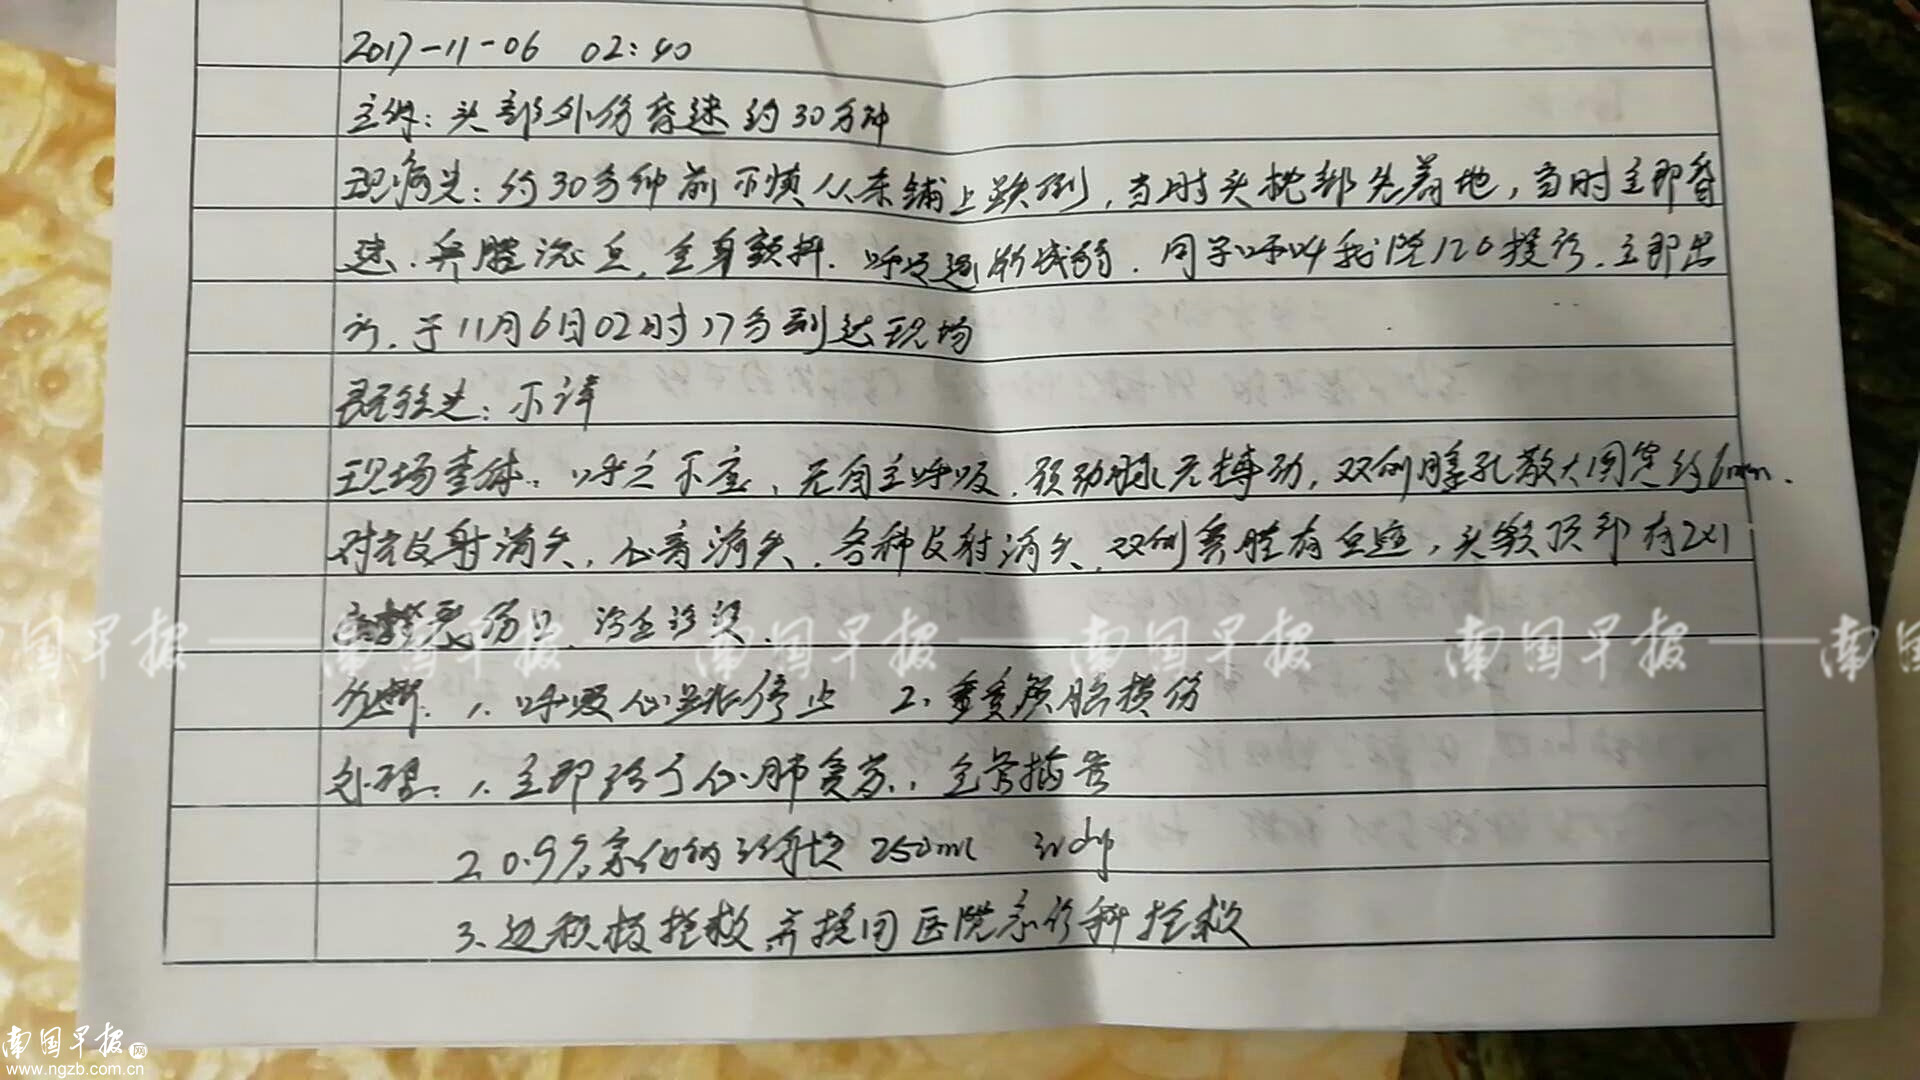 2017-11-06 02:40
主诉：头部外伤昏迷约30分钟
现病史：约30分钟前不慎从床铺上跌倒，当时头枕部先着地，当时立即昏
迷、鼻腔流血、全身颤抖、呼吸逐渐减弱、同学呼叫我院120接诊、立即出
诊、于11月6日02时17分到达现场
既往史：不详
现场查体：呼之不应、无自主呼吸、颈动脉无搏动，双侧瞳孔散大固定约6mm、
对光反射消失、心音消失、各种反射消失、双侧鼻腔有血迹，头额顶部有2x1
裂伤口
诊断：1、呼吸心跳停止 2、重度颅脑损伤
处理：1、立即给予心肺复苏、气管插管
2、0.9%氯化钠注射液250ml ivdrip
3、边积极抢救并接回医院急诊科抢救
南国早报
南国早报网
www.ngzb.com.cn